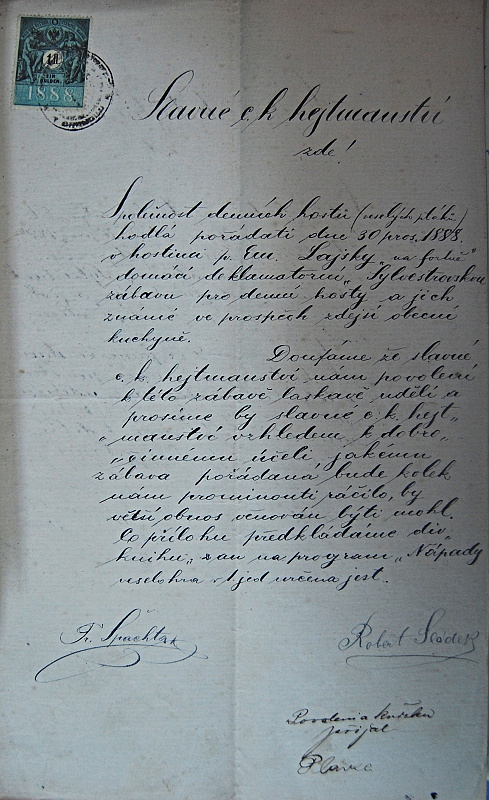 1
EIN
GULDEN
1888
Slavné c. k. hejtmanství
zde!
Společnost denních hostů (veselých ptáků)
hodlá pořádati dne 30 pros. 1888.
v hostinci p. Em. Lajsky „na fortně"
domácí deklamatorní „Sylvestrovskou
zábavu pro denní hosty a jich
známé ve prospěch zdejší obecní
kuchyně.
Doufáme že slavné
c. k. hejtmanství nám povolení
k této zábavě laskavě udělí a
prosíme by slavné c. k. hejt„
„manství vzhledem k dobro„
„činnému účeli jakému
zábava pořádaná bude kolek
nám prominouti ráčilo, by
větší obnos věnován býti mohl.
Co přílohu předkládáme div.
knihu, z an na program „Nápady
veselohra v 1 jed. určena jest.
Fr. Špachták
Robert Sládek
Povolení a knížku
přijal